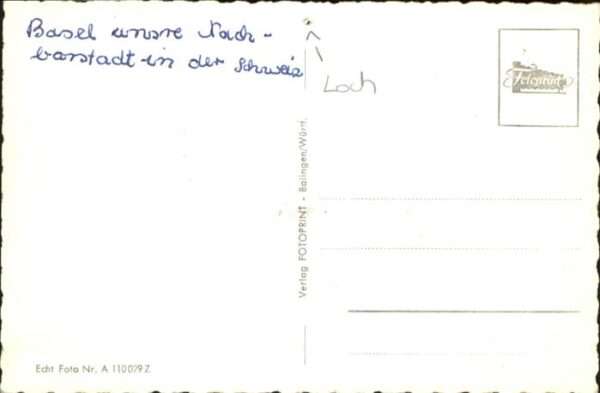 Basel unsre Nach-
barstadt in der Schweiz
Loch
Fotoprint
Verlag FOTOPRINT - Balingen/Württ.
Echt Foto Nr. A 110079 Z